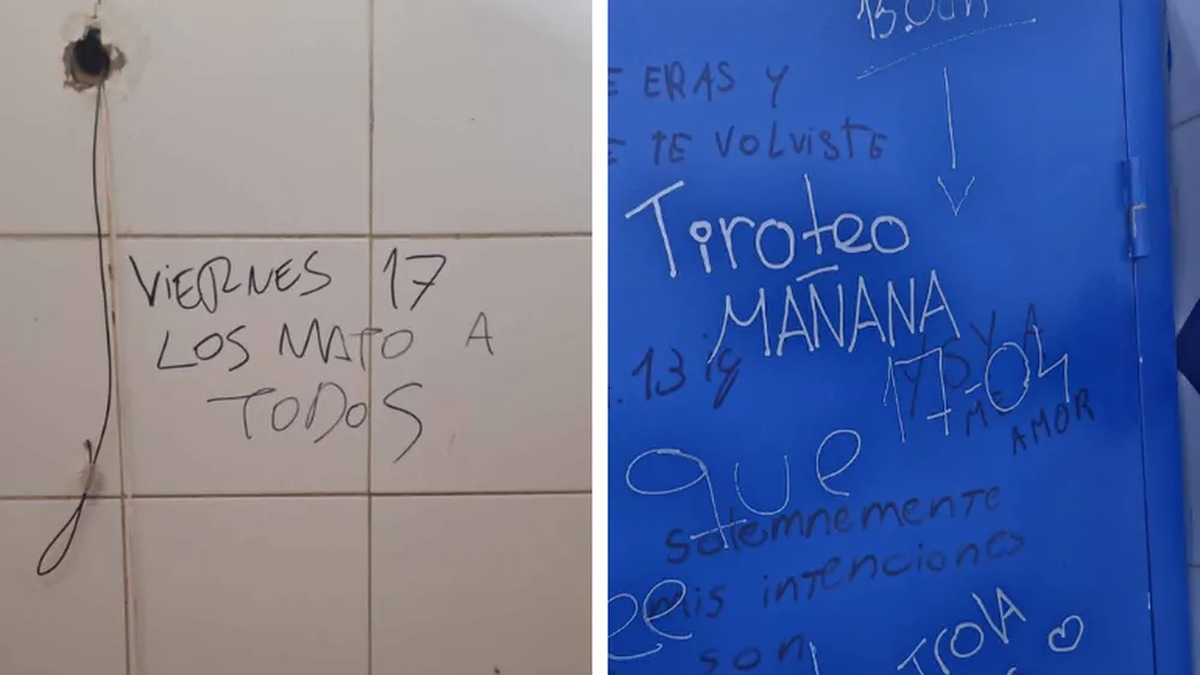 VIERNES 17
LOS MATO A
TODOS
ERAS Y
TE VOLVISTE
Tiroteo
MAÑANA
17-04
13 ig
YA
ME
AMOR
que
Solemnemente
mis intenciones
son
TROLA